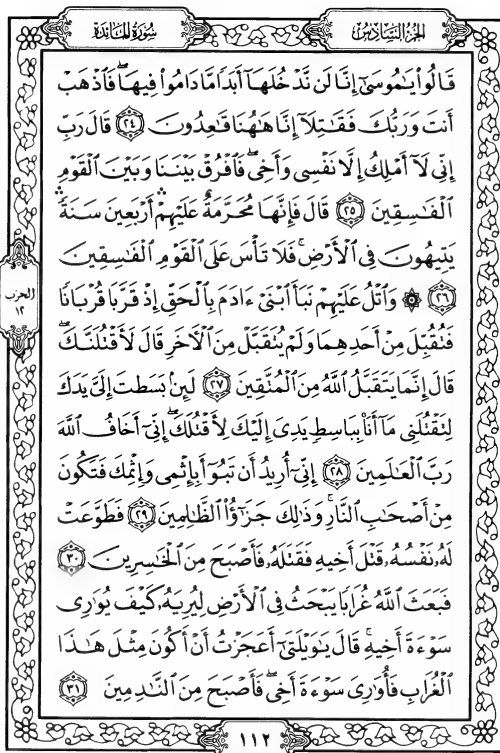 سُورَةُ المَائدة
الجُزءُ السَّادِسُ
قَالُوا۟ يَٰمُوسَىٰٓ إِنَّا لَن نَّدْخُلَهَآ أَبَدًا مَّا دَامُوا۟ فِيهَا ۖ فَٱذْهَبْ
أَنتَ وَرَبُّكَ فَقَٰتِلَآ إِنَّا هَٰهُنَا قَٰعِدُونَ ٢٤ قَالَ رَبِّ
إِنِّى لَآ أَمْلِكُ إِلَّا نَفْسِى وَأَخِى ۖ فَٱفْرُقْ بَيْنَنَا وَبَيْنَ ٱلْقَوْمِ
ٱلْفَٰسِقِينَ ٢٥ قَالَ فَإِنَّهَا مُحَرَّمَةٌ عَلَيْهِمْ ۛ أَرْبَعِينَ سَنَةً ۛ
يَتِيهُونَ فِى ٱلْأَرْضِ ۚ فَلَا تَأْسَ عَلَى ٱلْقَوْمِ ٱلْفَٰسِقِينَ
٢٦ ۞ وَٱتْلُ عَلَيْهِمْ نَبَأَ ٱبْنَىْ ءَادَمَ بِٱلْحَقِّ إِذْ قَرَّبَا قُرْبَانًا
فَتُقُبِّلَ مِنْ أَحَدِهِمَا وَلَمْ يُتَقَبَّلْ مِنَ ٱلْءَاخَرِ قَالَ لَأَقْتُلَنَّكَ ۖ
قَالَ إِنَّمَا يَتَقَبَّلُ ٱللَّهُ مِنَ ٱلْمُتَّقِينَ ٢٧ لَئِنۢ بَسَطتَ إِلَىَّ يَدَكَ
لِتَقْتُلَنِى مَآ أَنَا۠ بِبَاسِطٍ يَدِىَ إِلَيْكَ لِأَقْتُلَكَ ۖ إِنِّىٓ أَخَافُ ٱللَّهَ
رَبَّ ٱلْعَٰلَمِينَ ٢٨ إِنِّىٓ أُرِيدُ أَن تَبُوٓأَ بِإِثْمِى وَإِثْمِكَ فَتَكُونَ
مِنْ أَصْحَٰبِ ٱلنَّارِ ۚ وَذَٰلِكَ جَزَٰٓؤُا۟ ٱلظَّٰلِمِينَ ٢٩ فَطَوَّعَتْ
لَهُۥ نَفْسُهُۥ قَتْلَ أَخِيهِ فَقَتَلَهُۥ فَأَصْبَحَ مِنَ ٱلْخَٰسِرِينَ ٣٠
فَبَعَثَ ٱللَّهُ غُرَابًا يَبْحَثُ فِى ٱلْأَرْضِ لِيُرِيَهُۥ كَيْفَ يُوَٰرِى
سَوْءَةَ أَخِيهِ ۚ قَالَ يَٰوَيْلَتَىٰٓ أَعَجَزْتُ أَنْ أَكُونَ مِثْلَ هَٰذَا
ٱلْغُرَابِ فَأُوَٰرِىَ سَوْءَةَ أَخِى ۖ فَأَصْبَحَ مِنَ ٱلنَّٰدِمِينَ ٣١
الحزب
١٢
١١٢